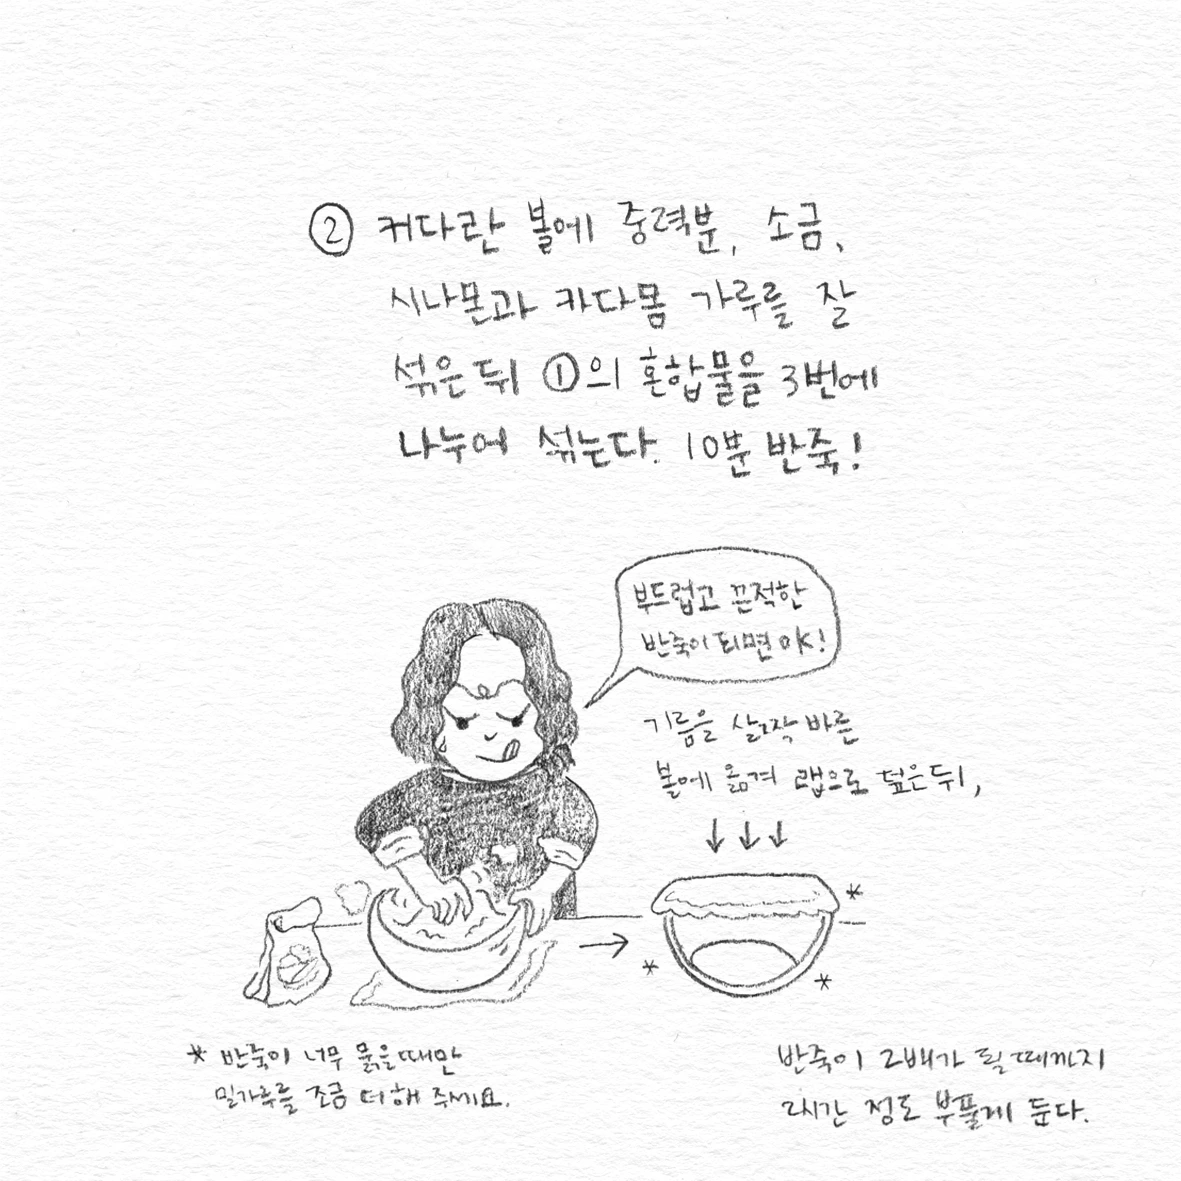 ② 커다란 볼에 중력분, 소금,
시나몬과 카다몸 가루를 잘
섞은 뒤 ①의 혼합물을 3번에
나누어 섞는다. 10분 반죽!
부드럽고 끈적한
반죽이 되면 OK!
기름을 살짝 바른
볼에 옮겨 랩으로 덮은 뒤,
* 반죽이 너무 묽을때만
밀가루를 조금 더해 주세요.
반죽이 2배가 될 때까지
2시간 정도 부풀게 둔다.